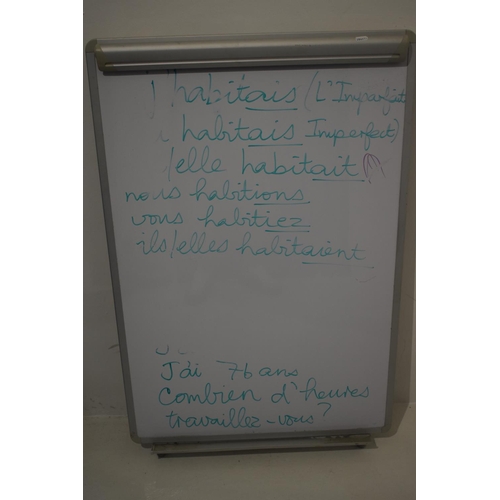 j'habitais (L'Imparfait
habitais Imperfect)
/elle habitait
nous habitions
vous habitiez
ils/elles habitaient
J'ai 76 ans
Combien d'heures
travaillez-vous?